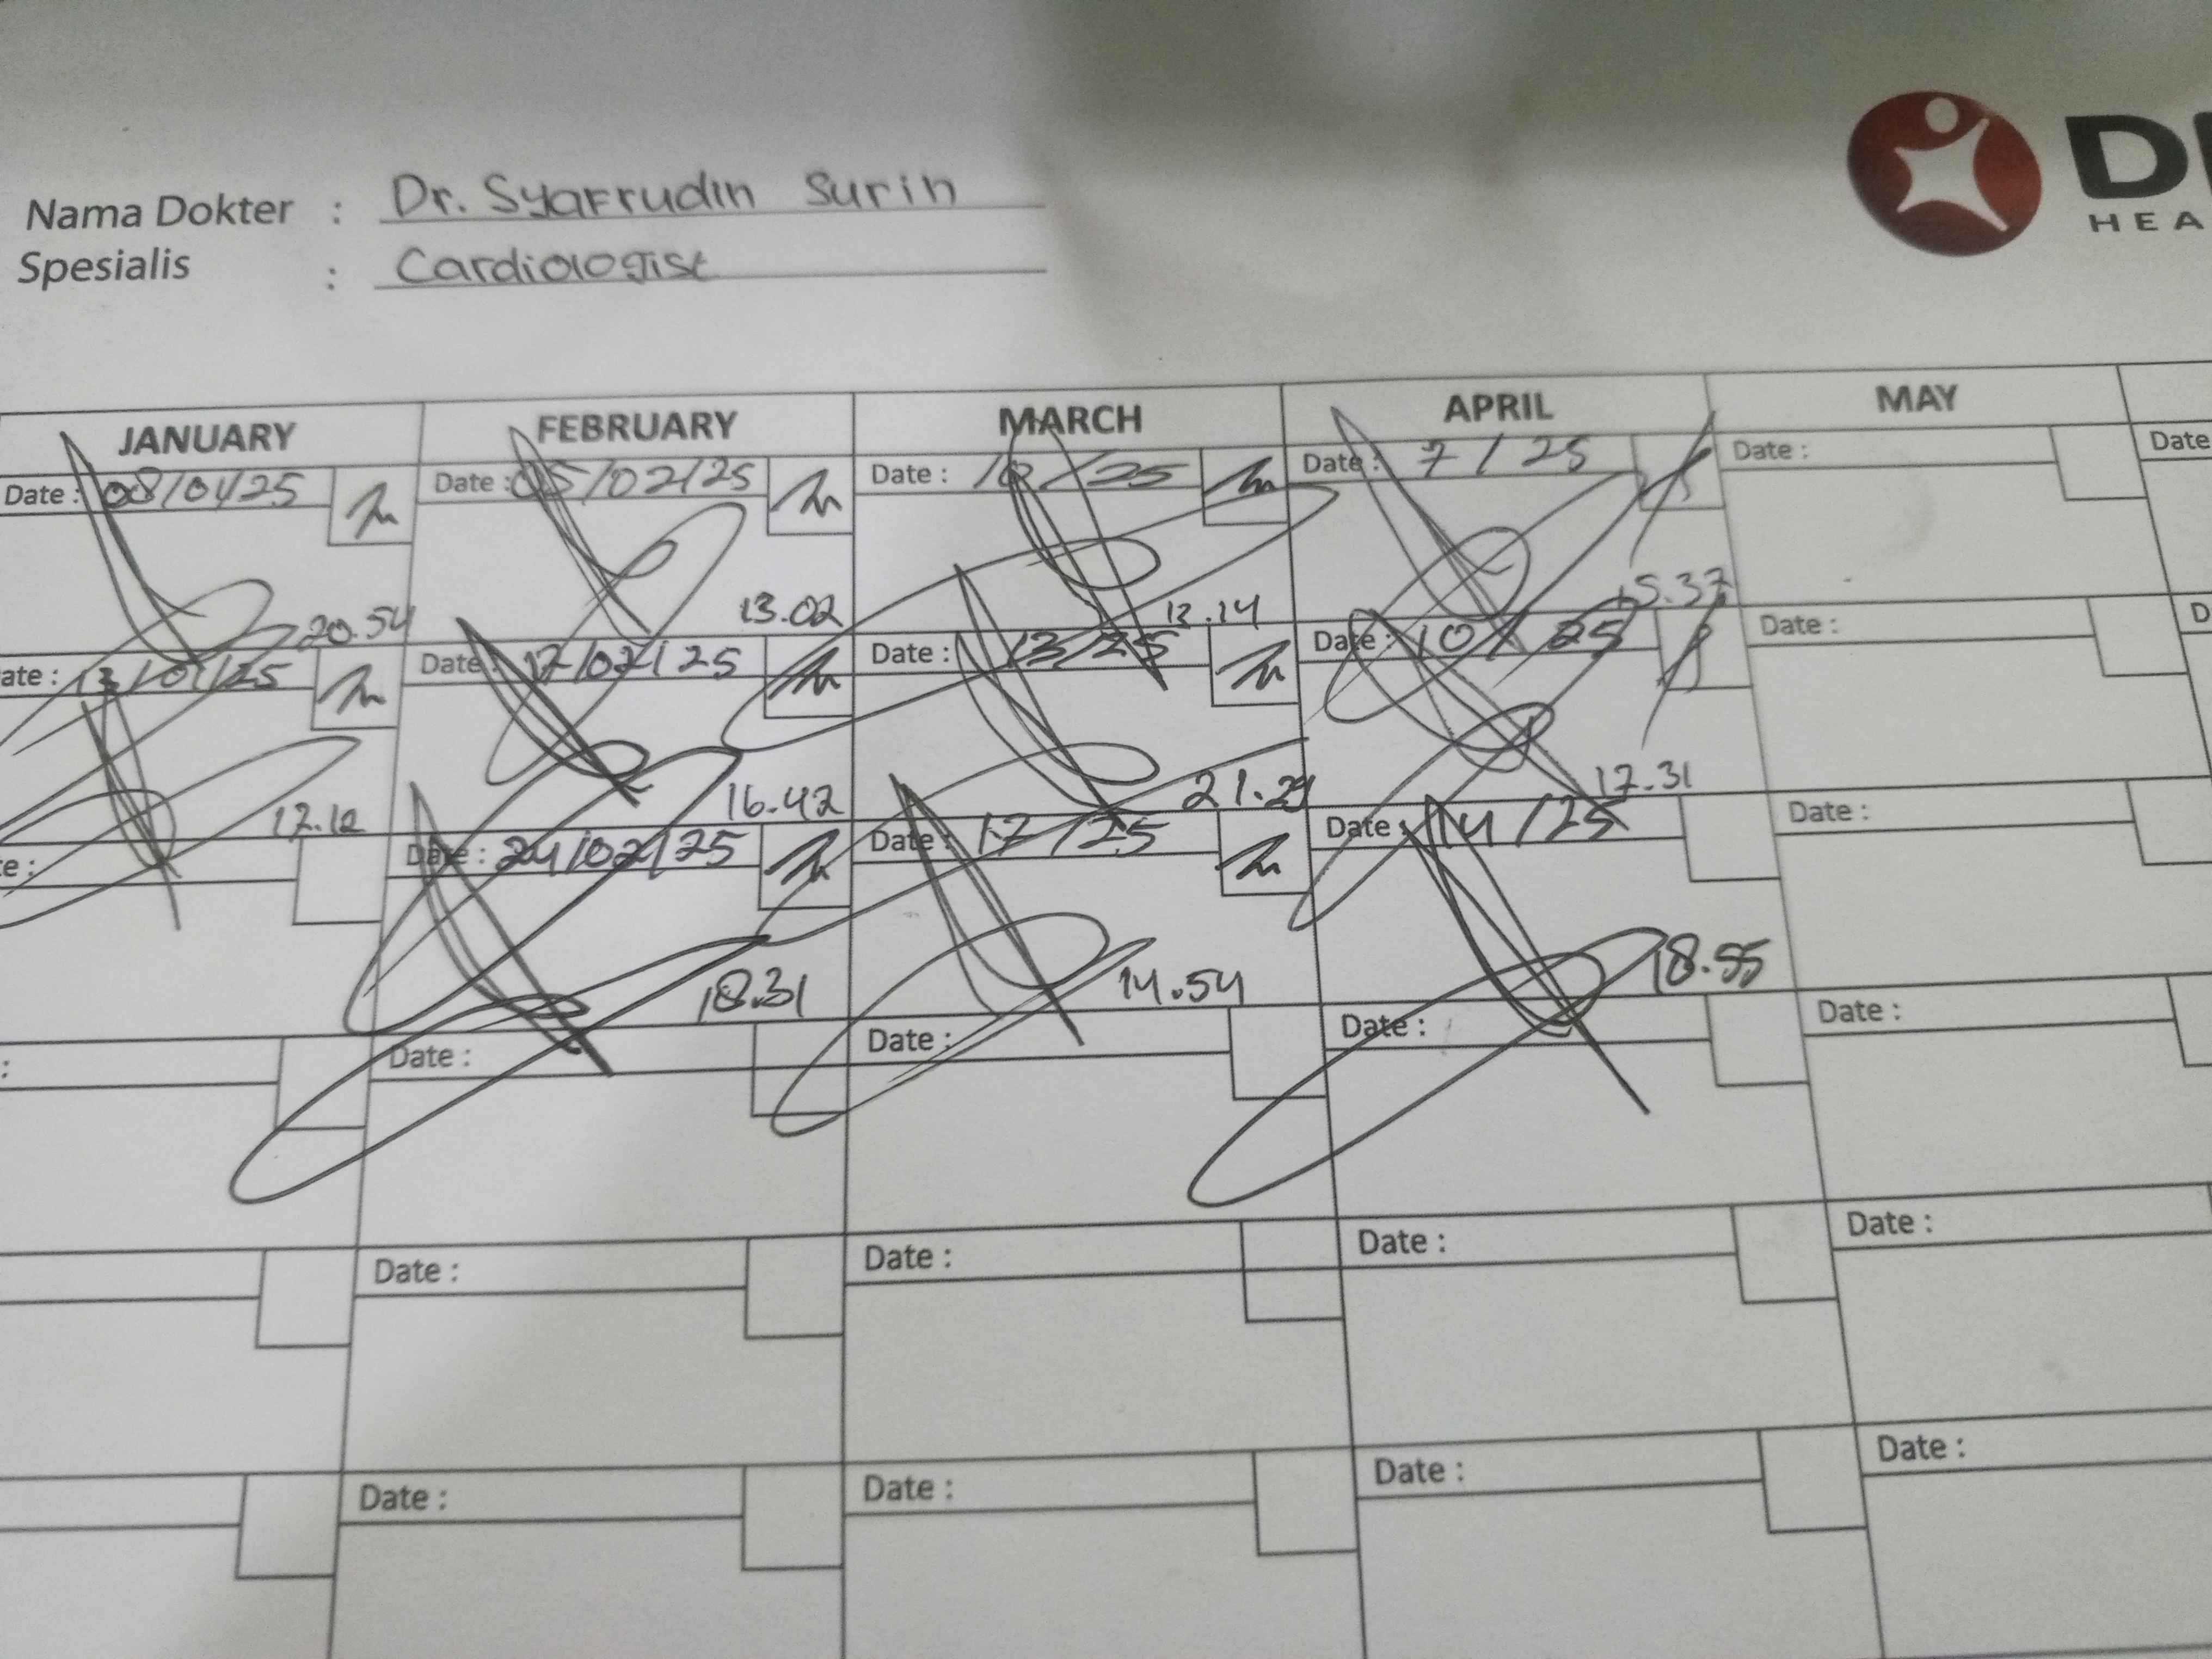 Nama Dokter : Dr. Syafrudin Surin
Spesialis : Cardiologist
D
HEA
JANUARY FEBRUARY MARCH APRIL MAY
Date : 08/01/25 Date : 05/02/25 Date : 10/25 Date : 7/25 Date : Date
20.54 13.02 15.37
ate : 13/01/25 Date : 17/02/25 Date : 13/25 Date : 10/25 Date : D
16.42 17.31
e : Date : 24/02/25 Date : 17/25 Date : 14/25 Date :
18.31 14.54 18.55
: Date : Date : Date : Date :
Date : Date : Date : Date :
Date : Date : Date : Date :